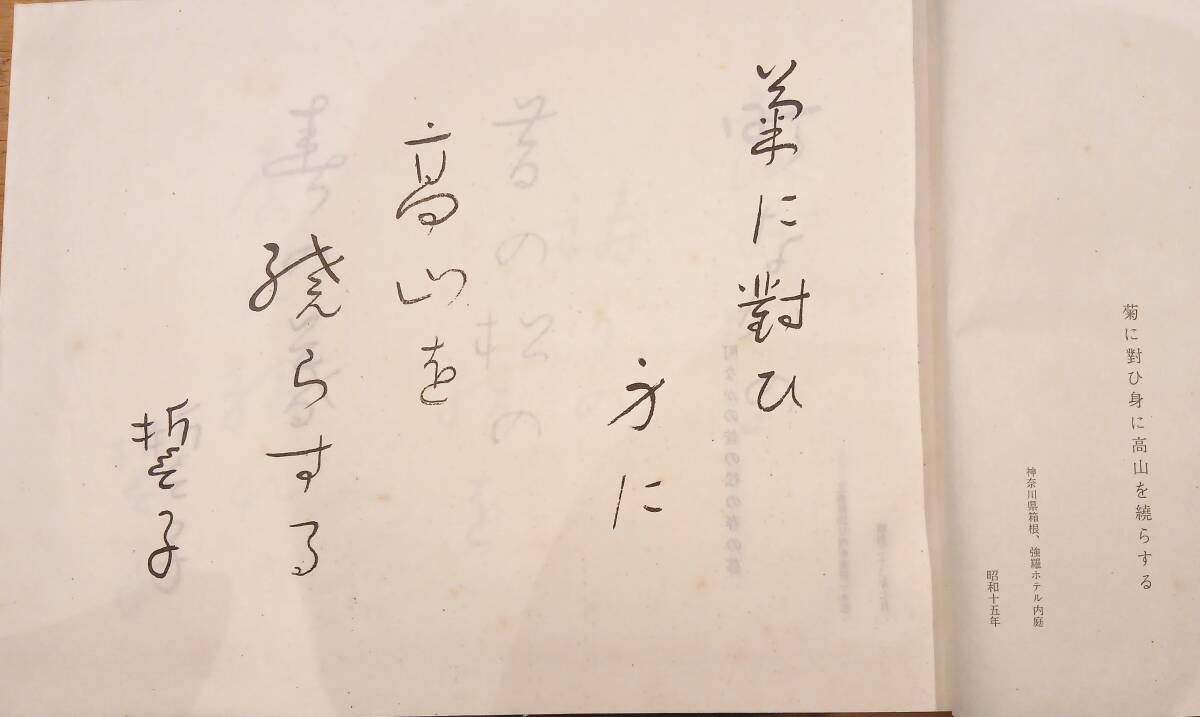 菊に對ひ身に高山を繞らする
神奈川県箱根、強羅ホテル内庭
昭和十五年
菊に對ひ
身に
高山を
繞らする
誓子